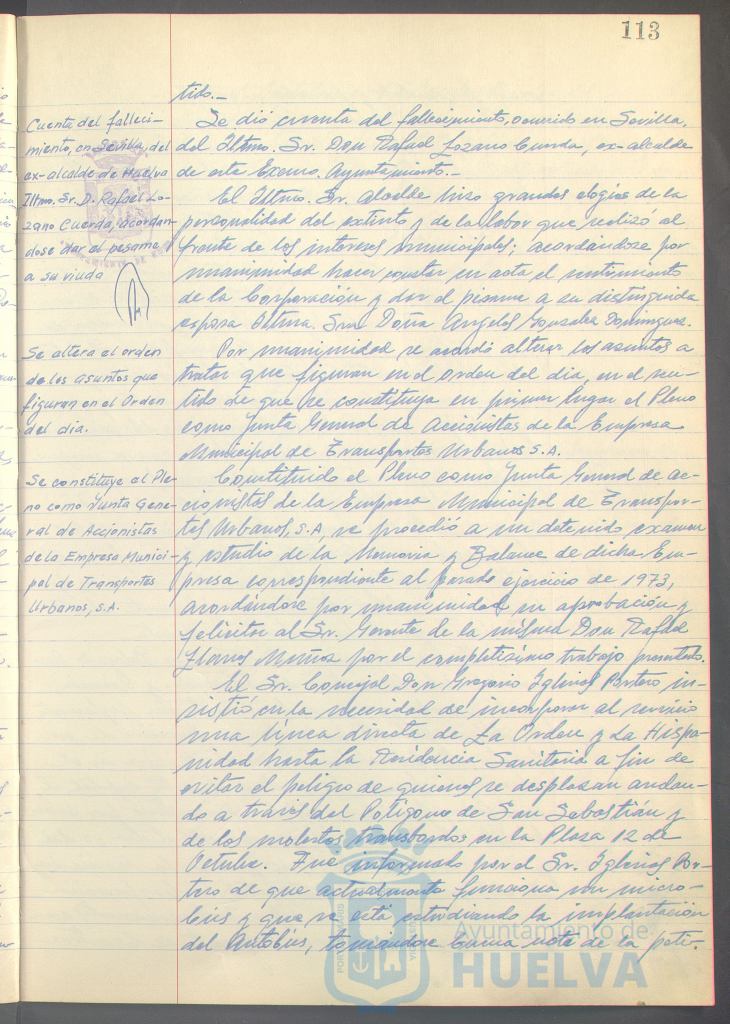 113
tido.-
Cuenta del falleci-
miento, en Sevilla, del
ex-alcalde de Huelva
Iltmo. Sr. D. Rafael Lo-
zano Cuerda, acordán-
dose dar el pésame
a su viuda
Se dió cuenta del fallecimiento, ocurrido en Sevilla,
del Iltmo. Sr. Don Rafael Lozano Cuerda, ex-alcalde
de este Excmo. Ayuntamiento.-
El Iltmo. Sr. Alcalde hizo grandes elogios de la
personalidad del extinto y de la labor que realizó al
frente de los intereses municipales; acordándose por
unanimidad hacer constar en acta el sentimiento
de la Corporación y dar el pésame a su distinguida
esposa Iltma. Sra. Doña Angeles Gonzalez Dominguez.
Se altera el orden
de los asuntos que
figuran en el Orden
del día.
Por unanimidad se acordó alterar los asuntos a
tratar que figuran en el orden del día, en el sen-
tido de que se constituya en primer lugar el Pleno
como Junta General de Accionistas de la Empresa
Municipal de Transportes Urbanos S.A.
Se constituye al Ple-
no como Junta Gene-
ral de Accionistas
de la Empresa Munici-
pal de Transportes
Urbanos, S.A.
Constituido el Pleno como Junta General de ac-
cionistas de la Empresa Municipal de Transpor-
tes Urbanos, S.A, se procedió a un detenido examen
y estudio de la Memoria y Balance de dicha Em-
presa correspondiente al pasado ejercicio de 1973,
acordándose por unanimidad su aprobación y
felicitar al Sr. Gerente de la misma Don Rafael
Llanos Muñoz por el completísimo trabajo presentado.
El Sr. Concejal Don Gregorio Iglesias Portero in-
sistió en la necesidad de incorporar al servicio
una línea directa de La Orden y La Hispa-
nidad hasta la Residencia Sanitaria a fin de
evitar el peligro de quienes se desplazan andan-
do a través del Polígono de San Sebastián y
de los molestos transbordos en la Plaza 12 de
Octubre. Fué informado por el Sr. Iglesias Por-
tero de que actualmente funciona un micro-
bús y que se está estudiando la implantación
del Autobús, tomándose buena nota de la peti-
Ayuntamiento de
HUELVA